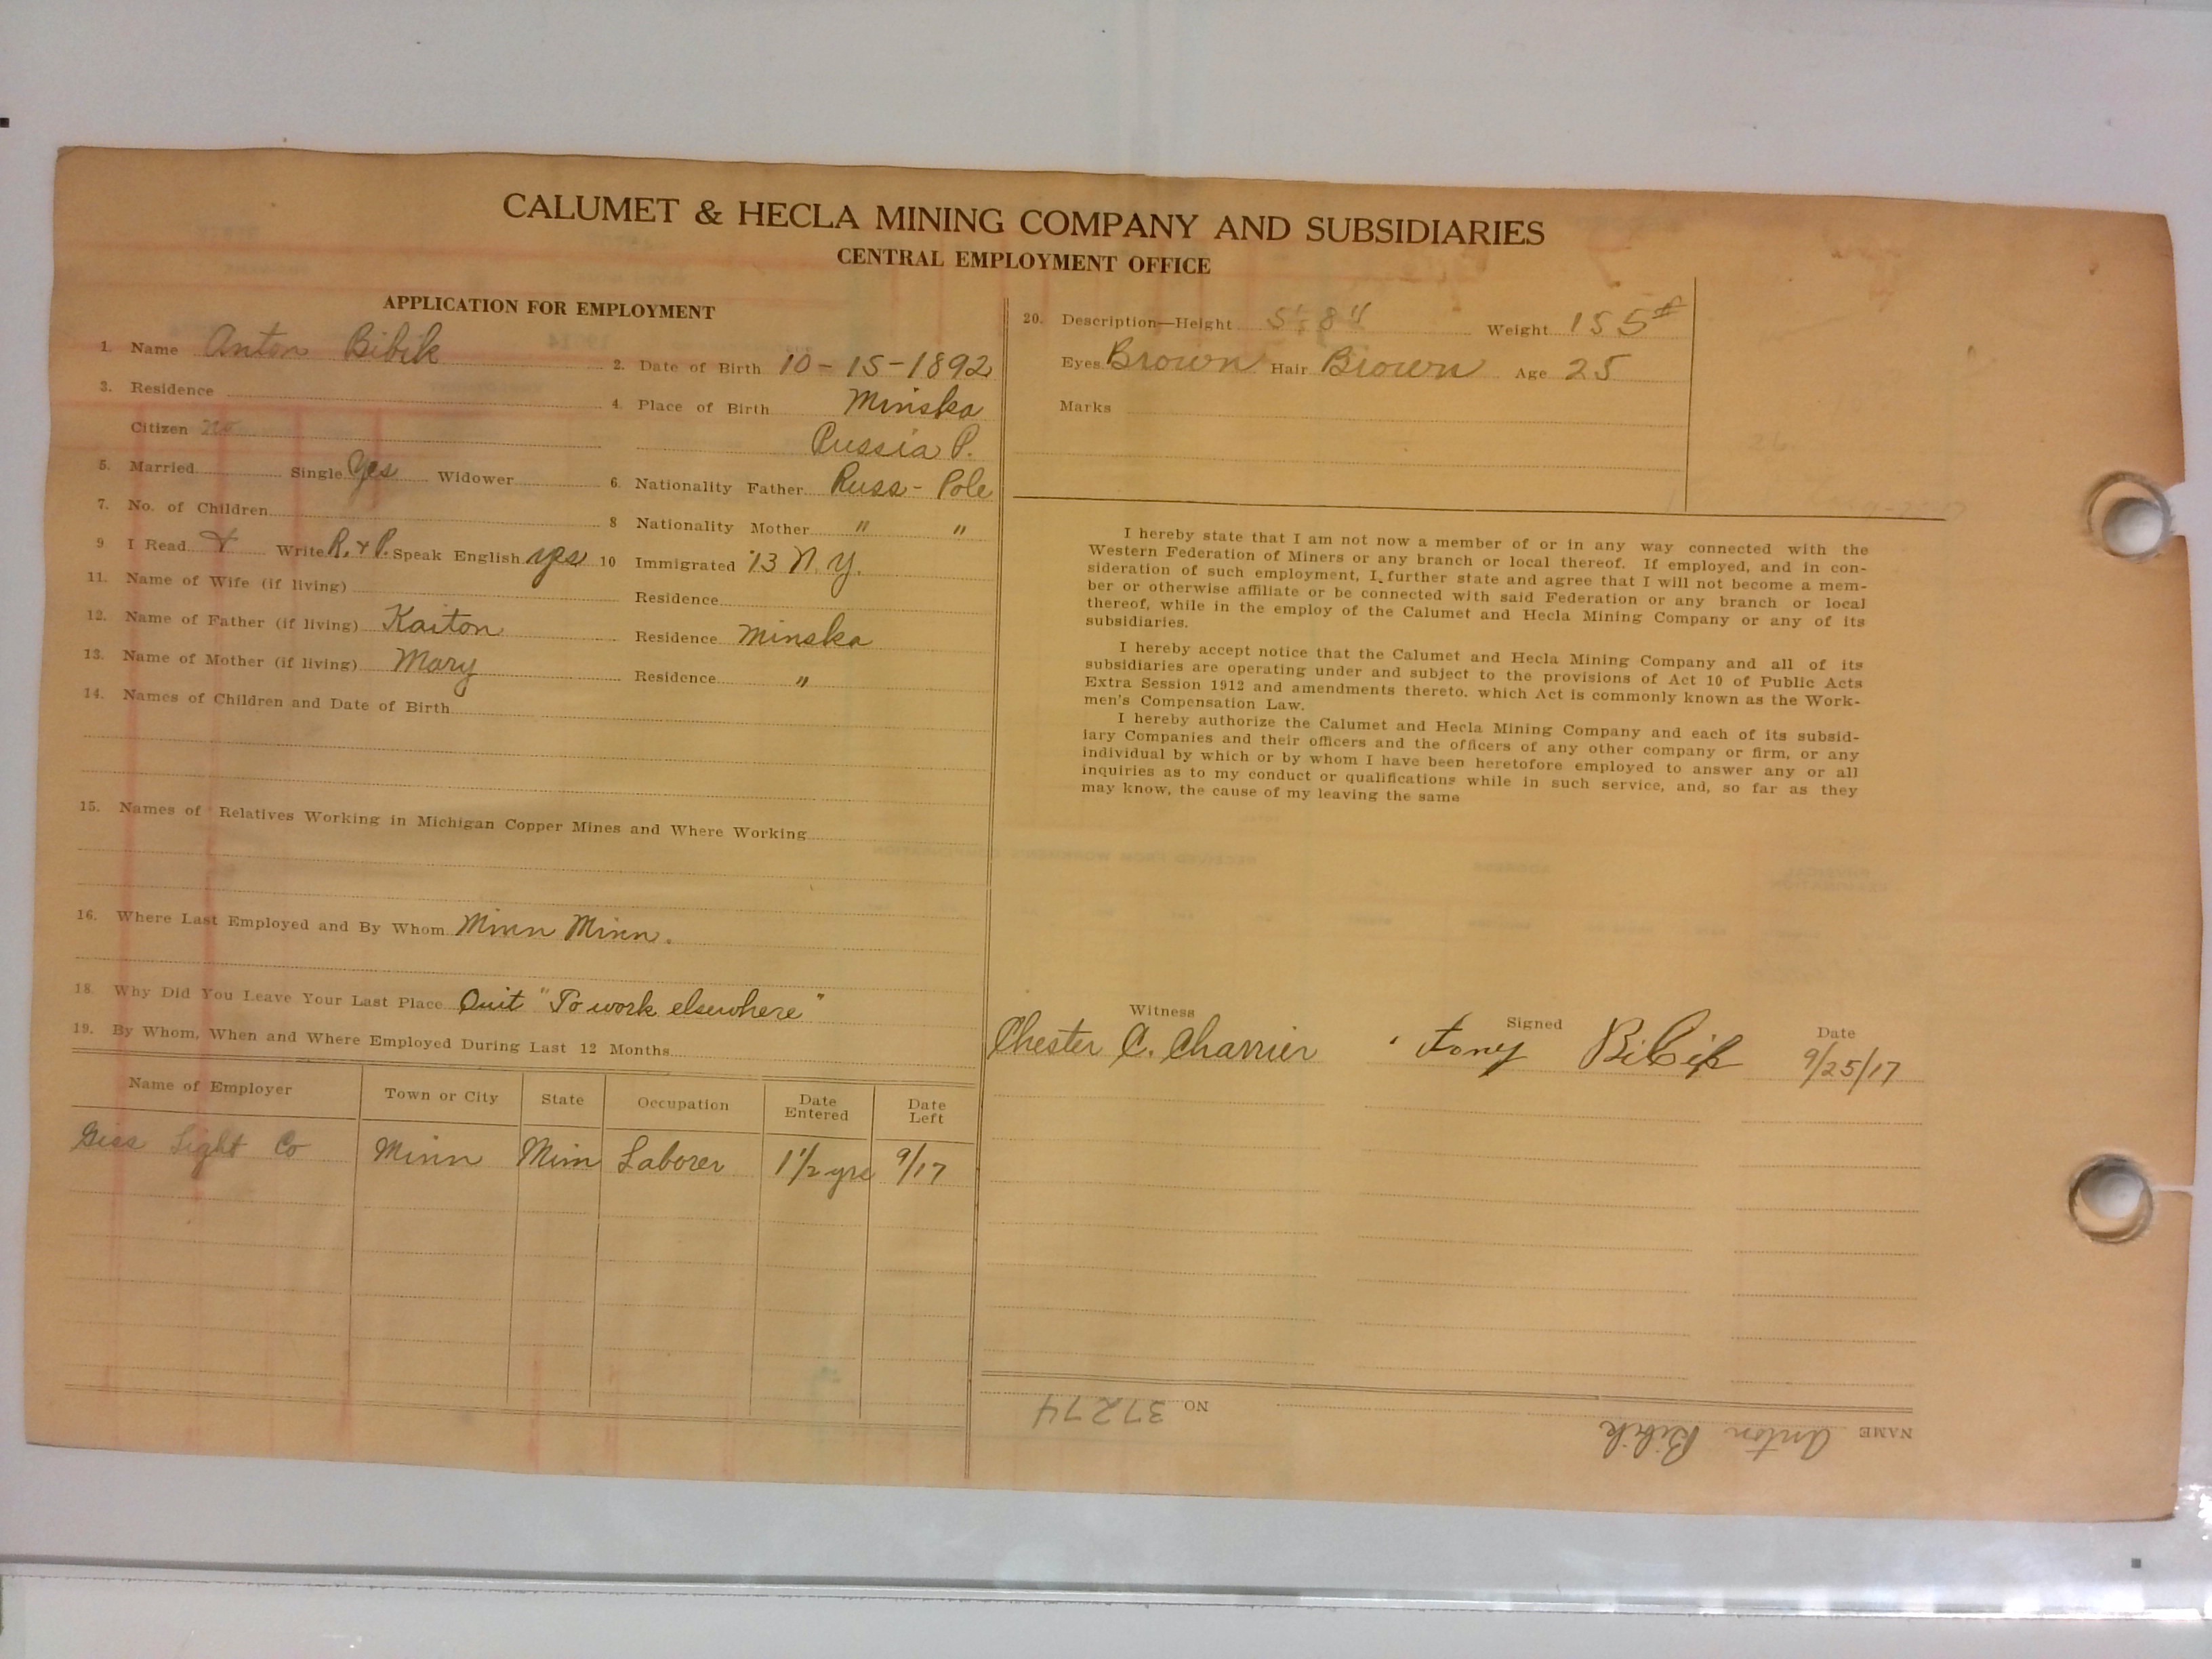 CALUMET & HECLA MINING COMPANY AND SUBSIDIARIES
CENTRAL EMPLOYMENT OFFICE
APPLICATION FOR EMPLOYMENT
1. Name Anton Bibik 2. Date of Birth 10-15-1892
3. Residence 4. Place of Birth Minska
Citizen No Russia P.
5. Married Single Yes Widower 6. Nationality Father Russ-Pole
7. No. of Children 8 Nationality Mother " "
9 I Read & Write R. & P. Speak English yes 10 Immigrated '13 N.Y.
11. Name of Wife (if living) Residence
12. Name of Father (if living) Kaiton Residence Minska
13. Name of Mother (if living) Mary Residence "
14. Names of Children and Date of Birth
15. Names of Relatives Working in Michigan Copper Mines and Where Working
16. Where Last Employed and By Whom Minn Minn.
18. Why Did You Leave Your Last Place Quit "To work elsewhere"
19. By Whom, When and Where Employed During Last 12 Months
Name of Employer Town or City State Occupation Date Entered Date Left
Light Co Minn Minn Laborer 1 1/2 yrs 9/17
20. Description—Height 5' 8" Weight 155#
Eyes Brown Hair Brown Age 25
Marks
I hereby state that I am not now a member of or in any way connected with the
Western Federation of Miners or any branch or local thereof. If employed, and in con-
sideration of such employment, I further state and agree that I will not become a mem-
ber or otherwise affiliate or be connected with said Federation or any branch or local
thereof, while in the employ of the Calumet and Hecla Mining Company or any of its
subsidiaries.
I hereby accept notice that the Calumet and Hecla Mining Company and all of its
subsidiaries are operating under and subject to the provisions of Act 10 of Public Acts
Extra Session 1912 and amendments thereto, which Act is commonly known as the Work-
men's Compensation Law.
I hereby authorize the Calumet and Hecla Mining Company and each of its subsid-
iary Companies and their officers and the officers of any other company or firm, or any
individual by which or by whom I have been heretofore employed to answer any or all
inquiries as to my conduct or qualifications while in such service, and, so far as they
may know, the cause of my leaving the same
Witness Signed Date
Chester C. Charrier Tony Bibik 9/25/17
NAME Anton Bibik NO 37274